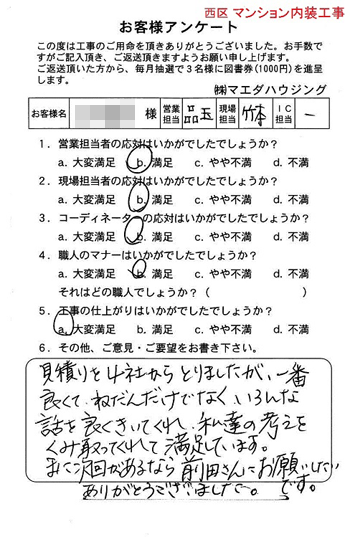 西区 マンション内装工事
お客様アンケート
この度は工事のご用命を頂きありがとうございました。お手数で
すがご記入頂き、ご返送頂きますようお願い申し上げます。
ご返送頂いた方から、毎月抽選で3名様に図書券(1000円)を進呈
します。
㈱マエダハウジング
お客様名 様 営業担当 品玉 現場担当 竹本 IC担当 ー
1．営業担当者の応対はいかがでしたでしょうか?
a. 大変満足 b. 満足 c. やや不満 d. 不満
2．現場担当者の応対はいかがでしたでしょうか?
a. 大変満足 b. 満足 c. やや不満 d. 不満
3．コーディネーターの応対はいかがでしたでしょうか?
a. 大変満足 b. 満足 c. やや不満 d. 不満
4．職人のマナーはいかがでしたでしょうか?
a. 大変満足 b. 満足 c. やや不満 d. 不満
それはどの職人でしょうか? ( )
5．工事の仕上がりはいかがでしたでしょうか?
a. 大変満足 b. 満足 c. やや不満 d. 不満
6．その他、ご意見・ご要望をお書き下さい。
見積りを4社からとりましたが、一番
良くて、ねだんだけでなく いろんな
話を良くきいてくれ、私達の考えを
くみ取ってくれて満足しています。
また次回があるなら前田さんにお願いしたい
です。
ありがとうございました。